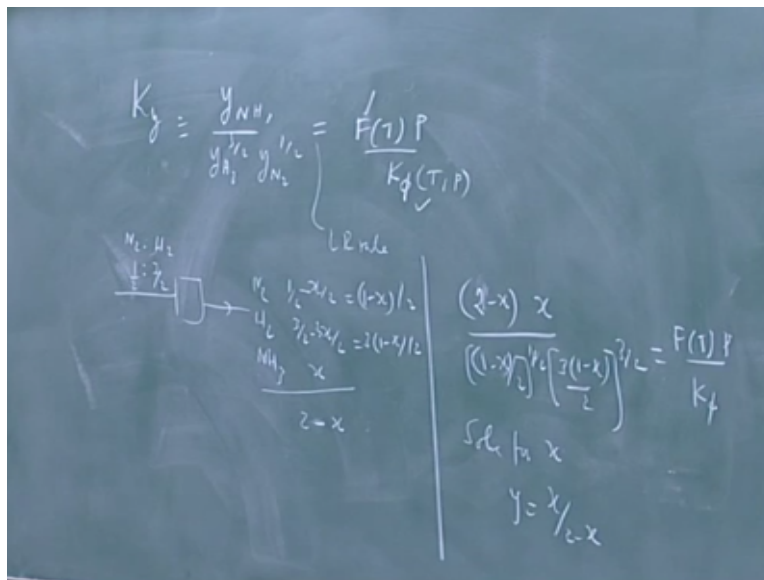 K_y ≡ y_NH₃ / (y_H₂^3/2 y_N₂^1/2) = F(T) P / K_ϕ(T, P)
LR rule
N₂ : H₂
1/2 : 3/2
N₂ 1/2 - x/2 = (1-x)/2
H₂ 3/2 - 3x/2 = 3(1-x)/2
NH₃ x
2-x
(2-x) x / ([(1-x)/2]^1/2 [3(1-x)/2]^3/2) = F(T) P / K_ϕ
Solve for x
y = x/2-x